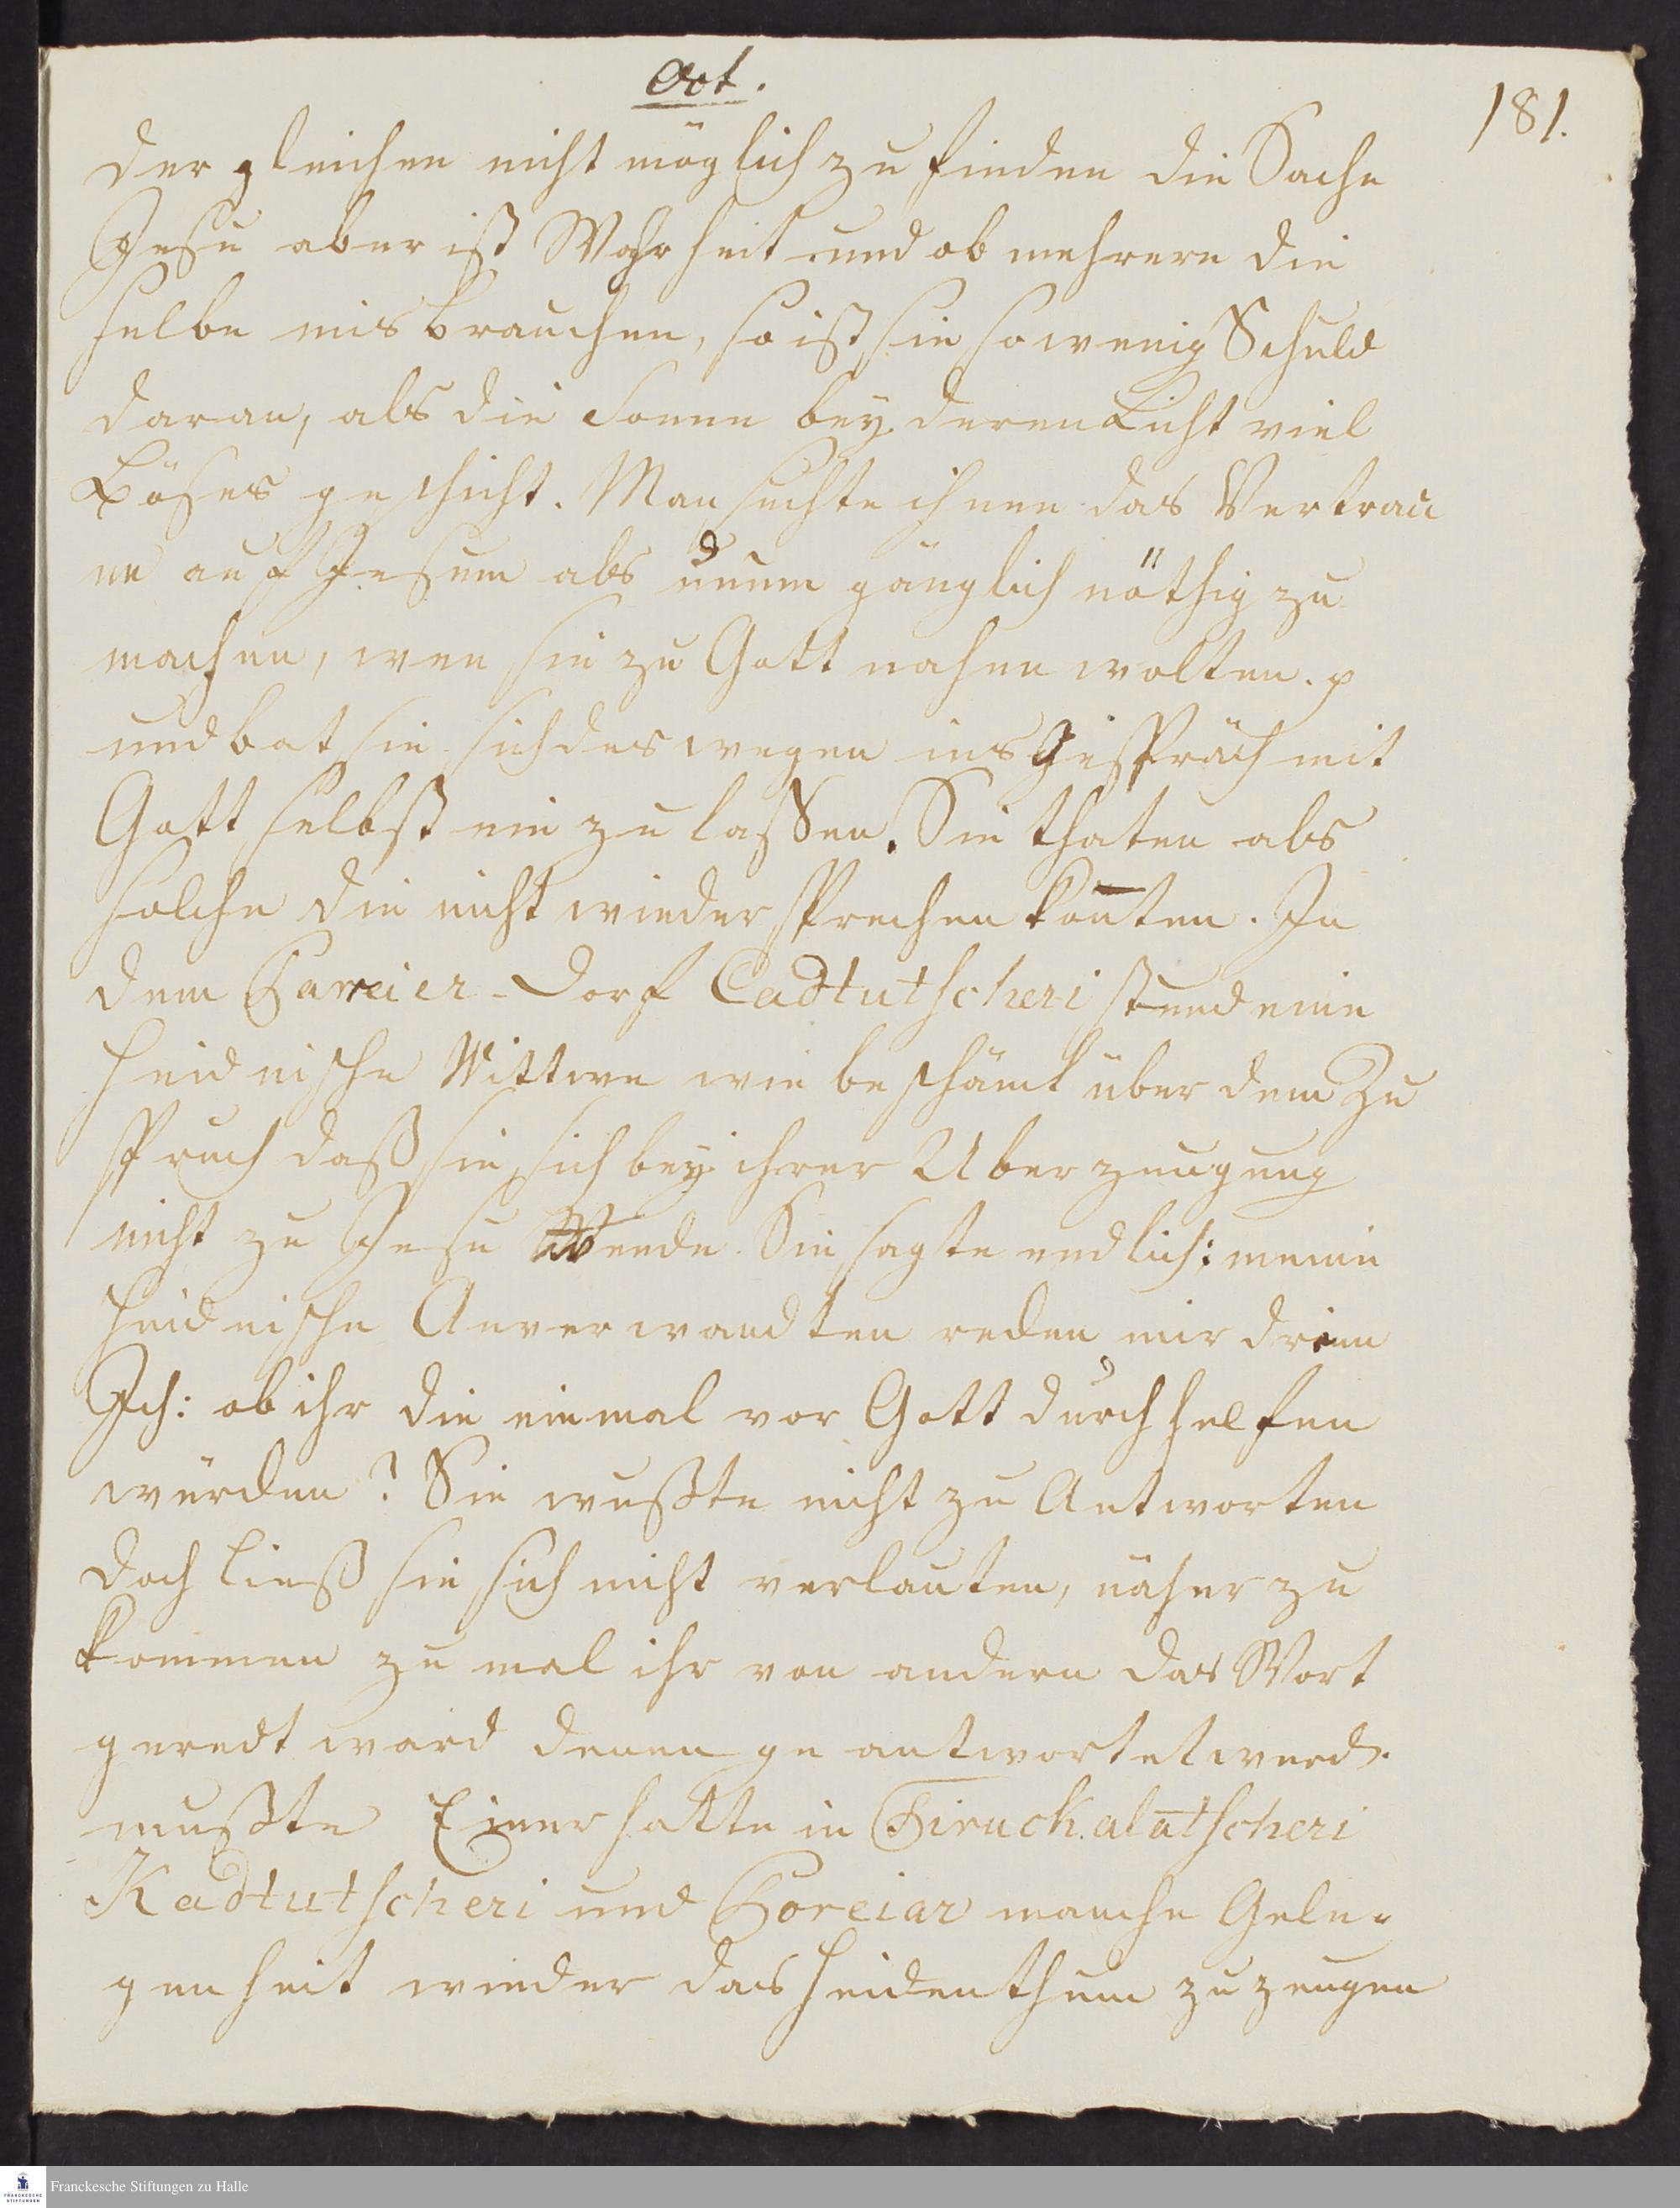 Oct.
181.
der gleichen nicht möglich zu finden die Sache
Jesu aber ist Wahrheit und ob mehrere die
selbe misbrauchen, so ist sie so wenig Schuld
daran, als die Sonne bey deren Licht viel
Böses geschicht. Man suchte ihnen das Vertrau
en auf Jesum als unum gänglich nöthig zu
machen, wen sie zu Gott nahen wolten. p
und bat sie sich deswegen ins Gespräch mit
Gott selbst ein zu lassen. Sie thaten als
solche die nicht wieder sprechen konten. In
dem Pareier-Dorf Cadtutscheri stund eine
heidnische Wittwe wie beschämt über dem Zu
spruch daß sie sich bey ihrer Uberzeugung
nicht zu Jesu Wende. Sie sagte endlich: meine
heidnische Anverwandten reden mir drein
Ich: ob ihr die einmal vor Gott durchhelfen
würden? Sie wußte nicht zu Antworten
doch ließ sie sich nicht verlauten, näher zu
kommen zu mal ihr von andern das Wort
geredt ward denen ge antwortet werd.
mußte Einer hatte in Tiruck.alatscheri
Kadtutscheri und Poreiar manche Gele-
genheit wieder das Heidenthum zu zeugen
Franckesche Stiftungen zu Halle